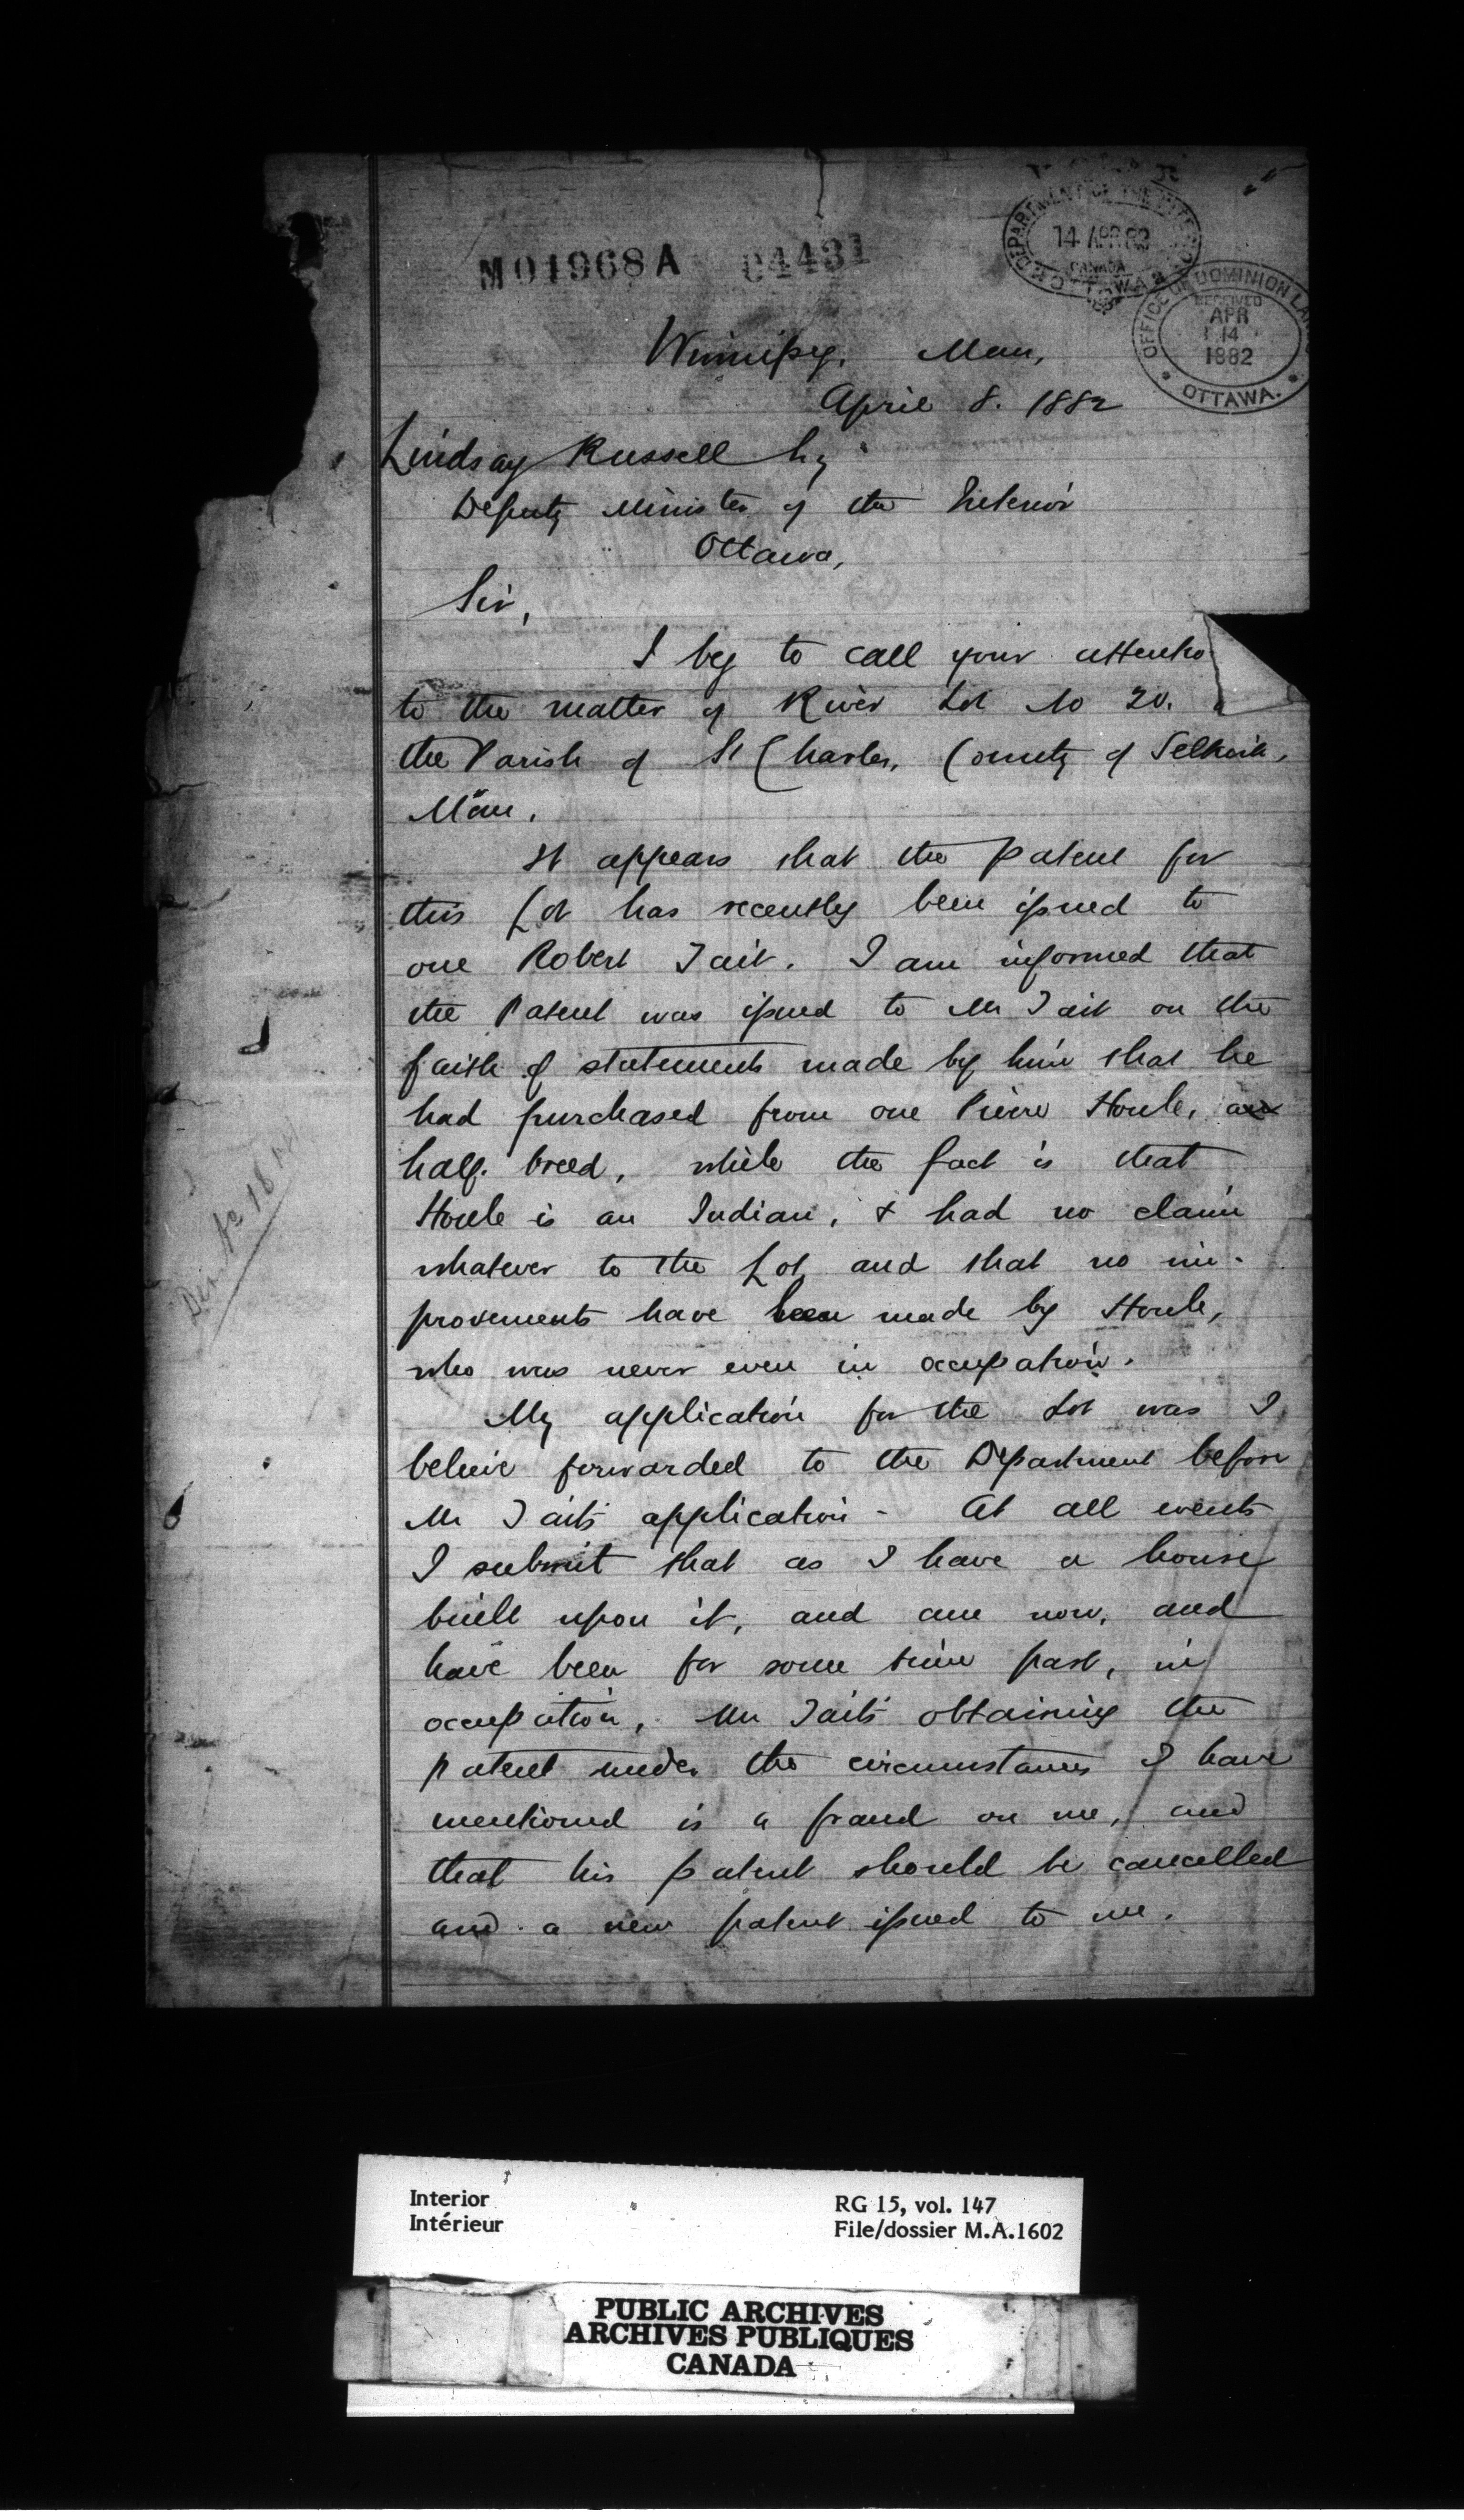 M01968A 04431
DEPARTMENT OF THE INTERIOR
14 APR 82
CANADA
OTTAWA
OFFICE OF DOMINION LA
RECEIVED
APR
14
1882
OTTAWA.
Winnipeg, Man,
April 8. 1882
Lindsay Russell Esq
Deputy Minister of the Interior
Ottawa,
Sir,
I beg to call your attentio
to the matter of River Lot No 20.
the Parish of St Charles, County of Selkirk,
Man.
It appears that the patent for
this Lot has recently been issued to
one Robert Tait. I am informed that
the Patent was issued to Mr Tait on the
faith of statements made by him that he
had purchased from one Pierre Houle, a
half. breed, while the fact is that
Houle is an Indian, & had no claim
whatever to the Lot, and that no im-
provements have been made by Houle,
who was never even in occupation.
My application for the Lot was I
believe forwarded to the Department before
Mr Tait's application - At all events
I submit that as I have a house
built upon it, and am now, and
have been for some time past, in
occupation, Mr Tait's obtaining the
patent under the circumstances I have
mentioned is a fraud on me, and
that his patent should be cancelled
and a new patent issued to me.
Interior
Intérieur
RG 15, vol. 147
File/dossier M.A.1602
PUBLIC ARCHIVES
ARCHIVES PUBLIQUES
CANADA